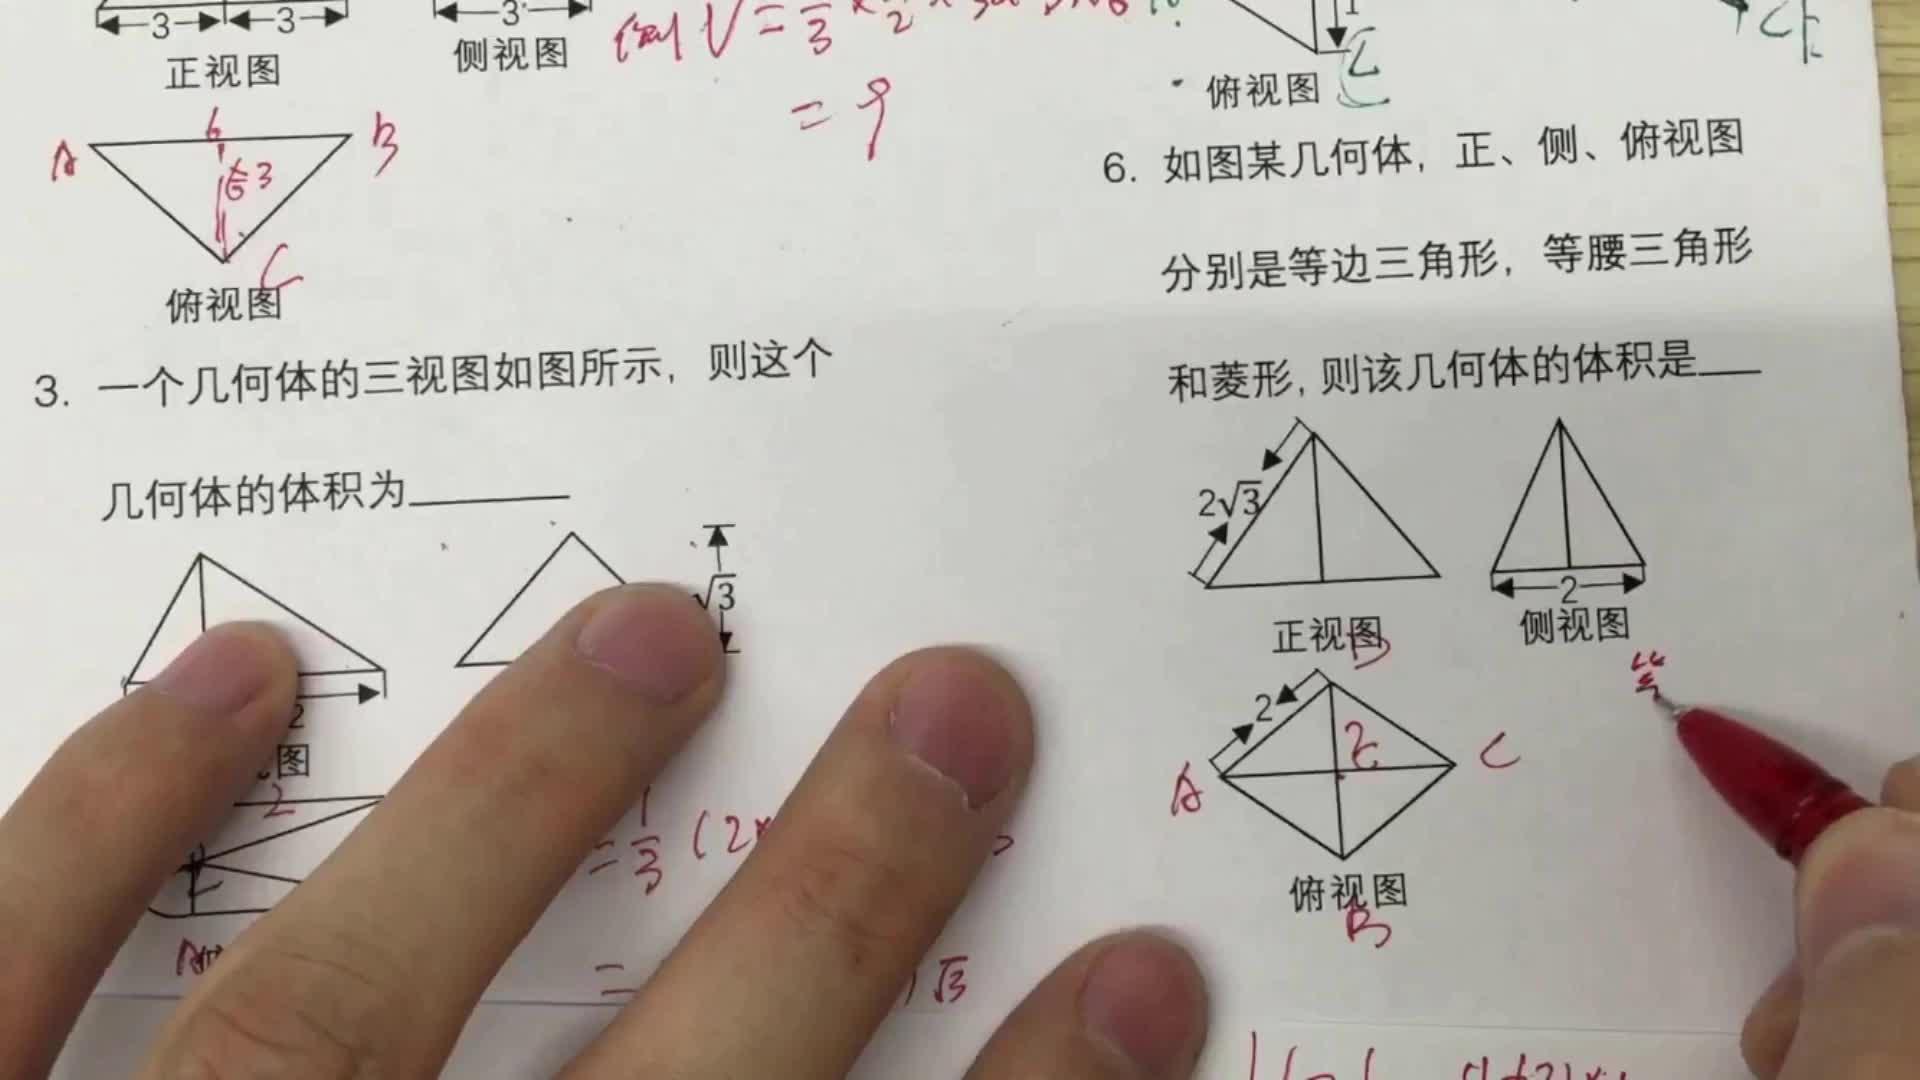 3 3
3
正视图
侧视图
= 9
6
A
B
3
C
俯视图
3. 一个几何体的三视图如图所示，则这个
几何体的体积为
√3
2
图
2
= 1/3 (2×
=
√3
俯视图
6. 如图某几何体，正、侧、俯视图
分别是等边三角形，等腰三角形
和菱形，则该几何体的体积是
2√3
2
正视图
侧视图
D
2
2
A
C
俯视图
B